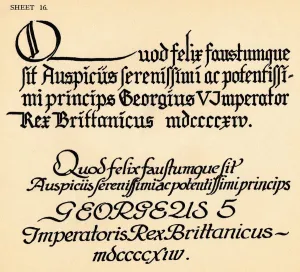 SHEET 16.
Quod felix faustumque
sit Auspiciis serenissimi ac potentissi-
mi princips Georgius V Imperator
Rex Brittanicus mdccccxiv.
Quod felix faustumque sit
Auspiciis serenissimi ac potentissimi princips
GEORGEUS 5
Imperatoris Rex Brittanicus ~
mdccccxiv.